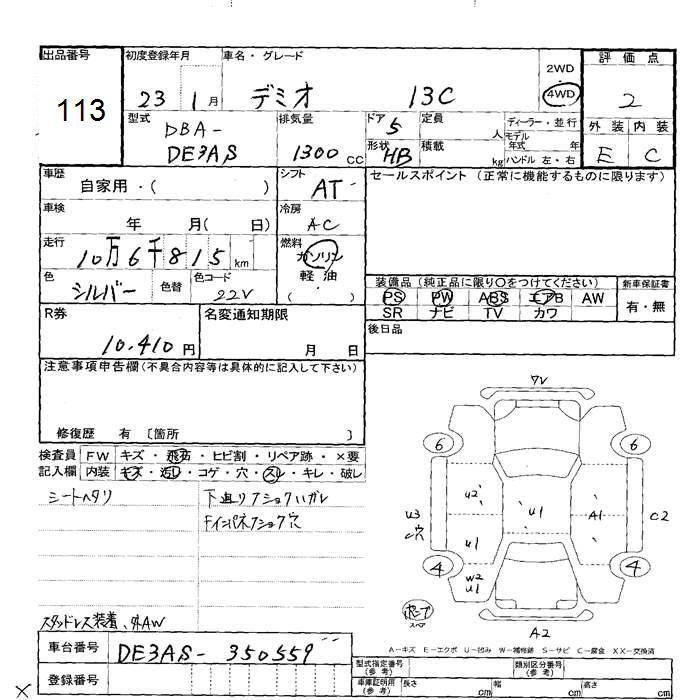 出品番号 初度登録年月 車名・グレード 2WD 4WD 評価点
113 23 1月 デミオ 13C 2
型式 DBA- DE3AS 排気量 1300CC ドア 5 定員 人 ディーラー・並行 外装 内装
形状 HB 積載 kg モデル年式 年 ハンドル 左・右 E C
車歴 自家用・( ) シフト AT セールスポイント (正常に機能するものに限ります)
車検 年 月( 日) 冷房 AC
走行 10万6千815km 燃料 ガソリン 軽油 ・ ( )
色 シルバー 色替 色コード 22V
装備品 (純正品に限り○をつけてください) 新車保証書
PS PW ABS エアB AW 有・無
SR ナビ TV カワ
R券 10,410円 名変通知期限 月 日 後日品
注意事項申告欄(不具合内容等は具体的に記入して下さい)
修復歴 有 〔箇所 〕
検査員 FW キズ・飛石・ヒビ割・リペア跡・×要
記入欄 内装 キズ・汚レ・コゲ・穴・スレ・キレ・破レ
シートヘタリ 下廻り
7V
6 6
U2 U1 A1
U3 穴 C2
U1
4 4
W2 U1
スペア
A2
スタッドレス装着、外AW
A-キズ E-エクボ U-凹み W-補修跡 S-サビ C-腐食 XX-交換済
車台番号 DE3AS-350559
登録番号
型式指定番号(参考) 類別区分番号(参考)
車庫証明用(参考) 長さ cm 幅 cm 高さ cm